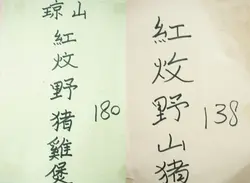 琼山
紅炆野猪雞煲
180
紅炆野山猪
138